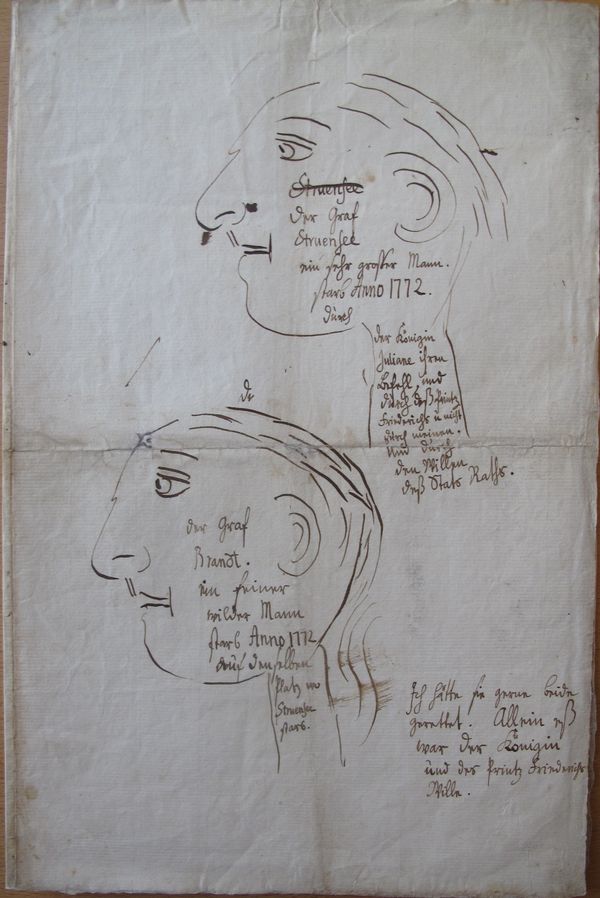 Struensee
der Graf
Struensee
ein sehr großer Mann.
starb Anno 1772.
durch
der Königin
Juliane ihren
Befehl, und
durch deß Printz
Friederichs u nicht
durch meinen.
Und durch
den Willen
deß Stats Raths.
de
der Graf
Brandt.
ein feiner
wilder Mann
starb Anno 1772
auf denselben
Platz wo
Struensee
starb.
Ich hätte sie gerne beide
gerettet. Allein eß
war der Königin
und des Printz Friederichs
Wille.